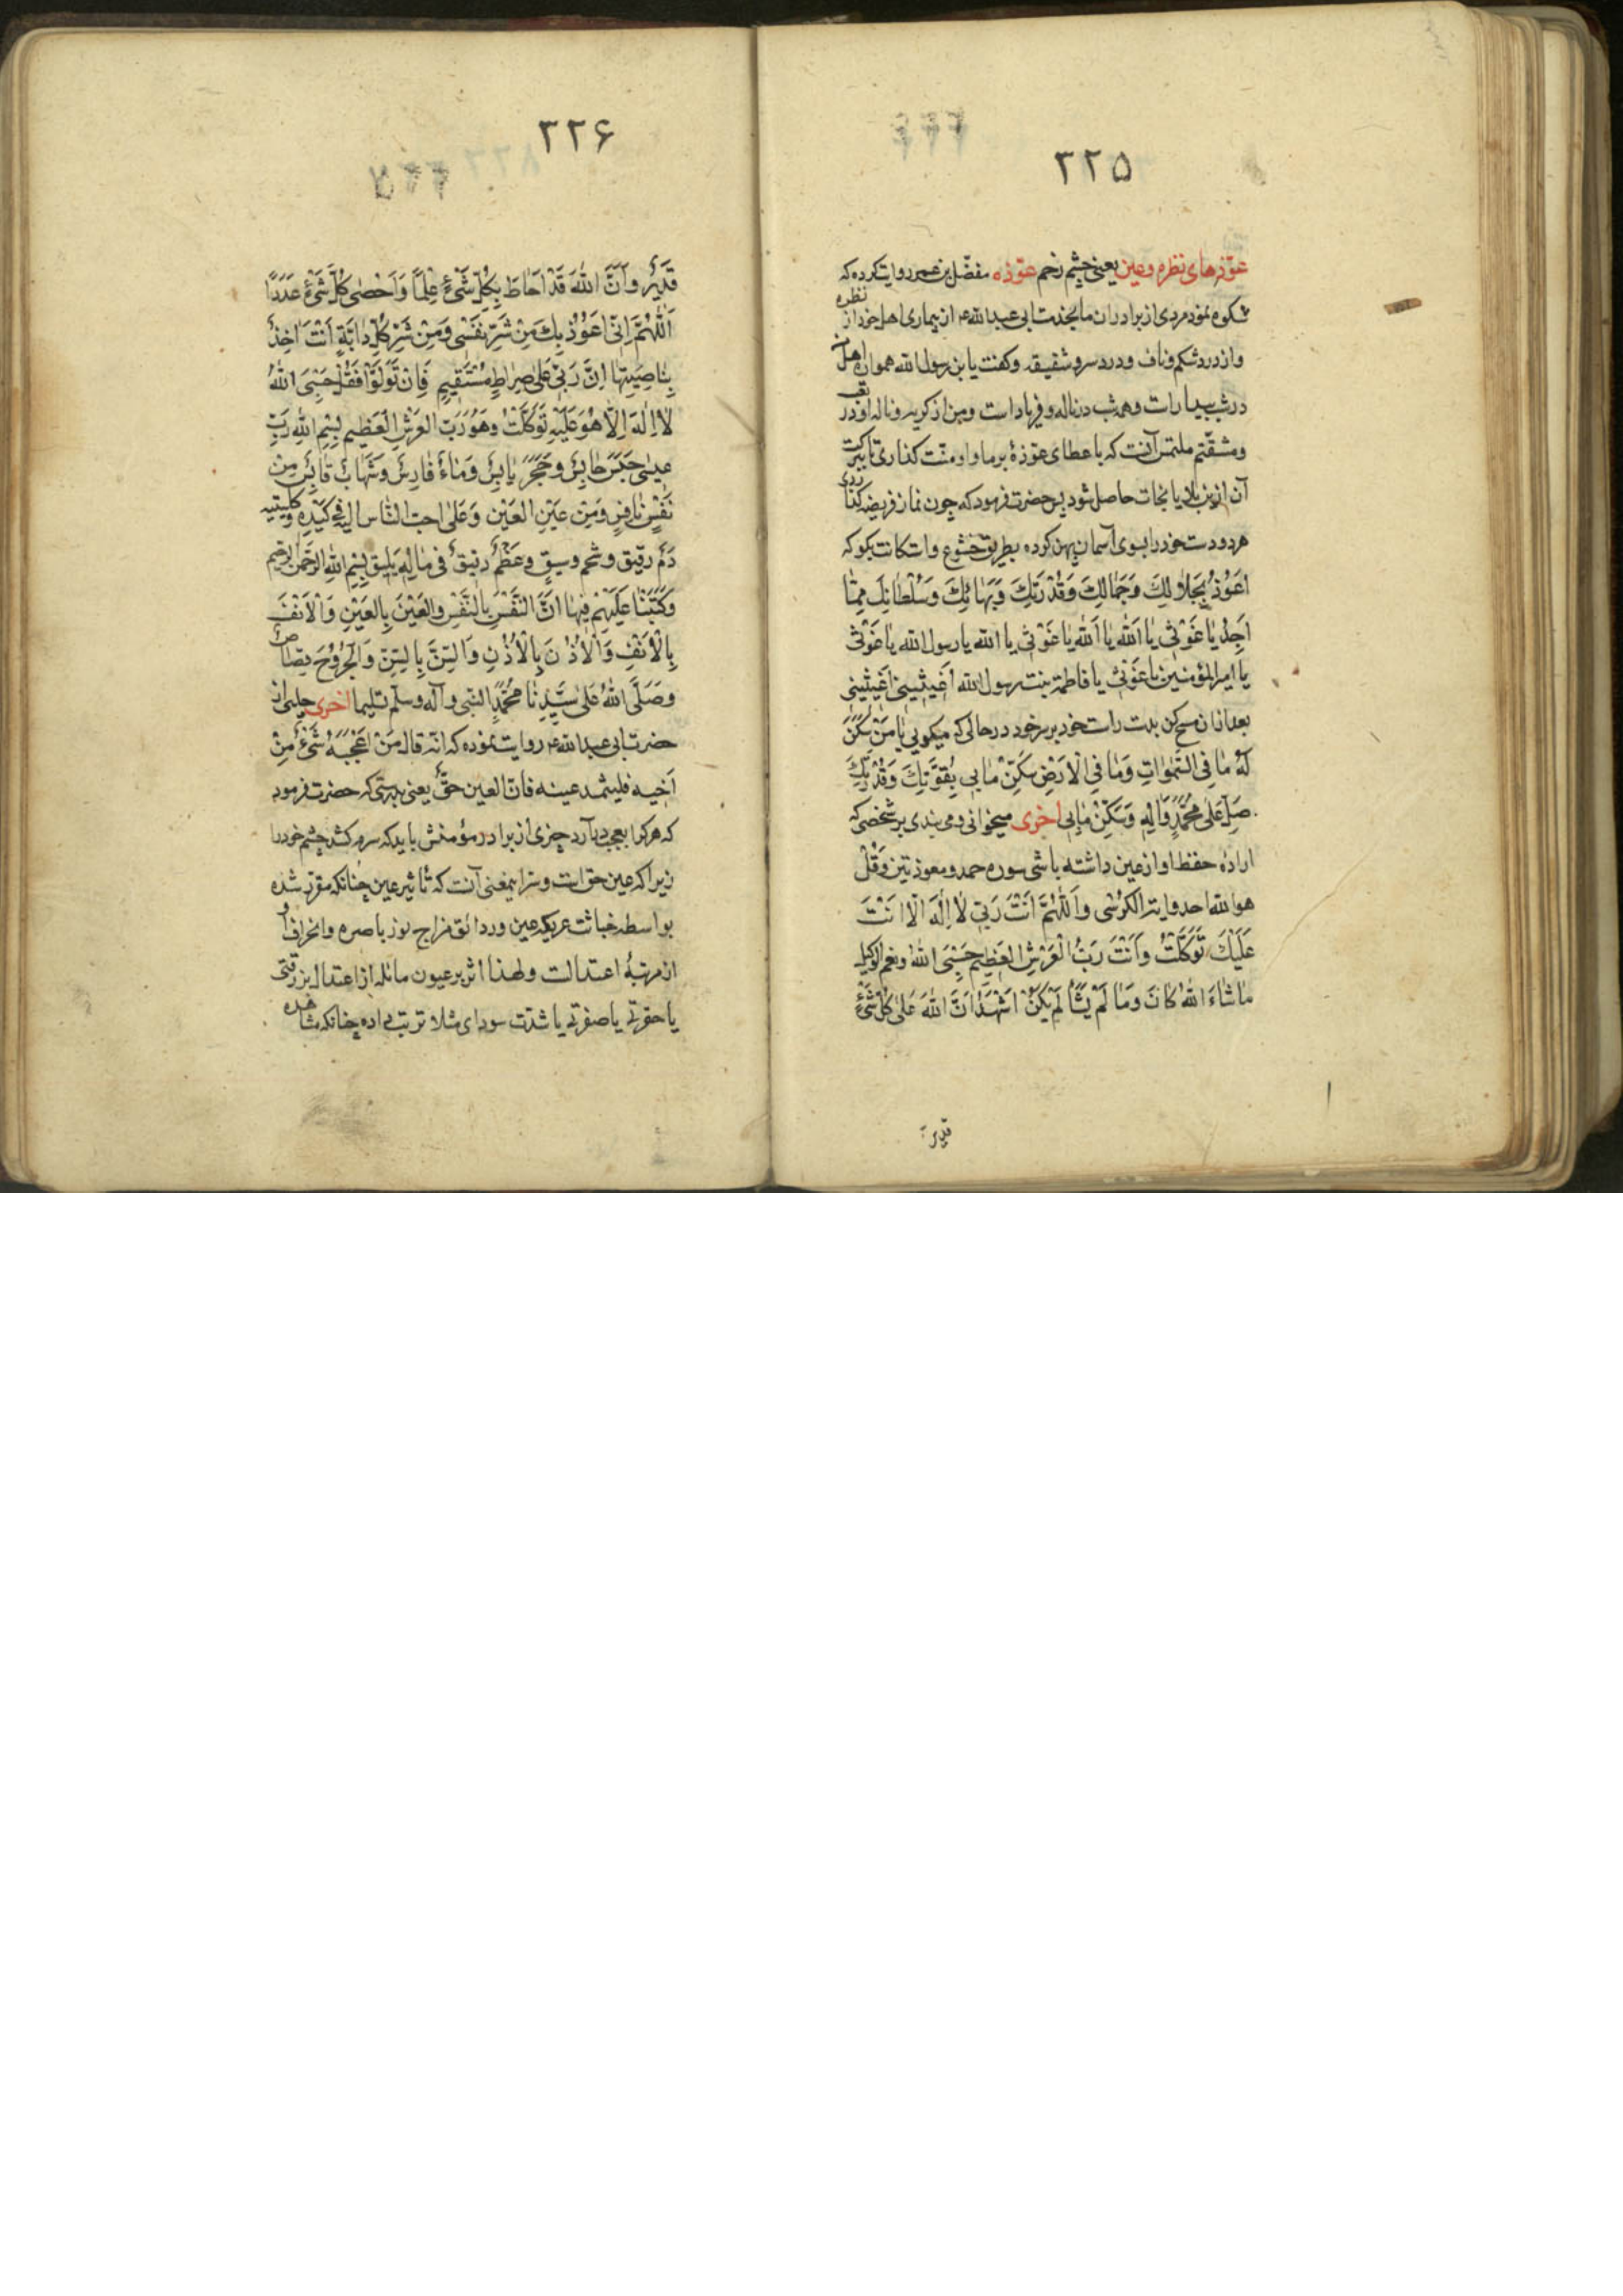 ۲۲۵
عوّذه‌های نظره وعین یعنی چشم زخم عوّذه مفضّل بن عمر روایت کرده که
شکوه نمود مردی از برادران ما بخدمت ابی عبد الله ع از بیماری اهل خود از نظره
واز درد شکم وناف ودرد سر وشقیقه وکفت یا بن رسول الله همواره اهل من
در شب بیدار است وهمه شب در ناله وفریاد است ومن از کریه وناله او در تعب
ومشقّتم ملتمس آنست که باعطای عوّذهٔ بر ما واو منّت کذاری تا ببرکت
آن ازین بلایا نجات حاصل شود پس حضرت فرمود که چون نماز فریضه کذاردی
هر دو دست خود را بسوی آسمان پهن کرده بطریق خشوع واستکانت بکو که
اَعُوذُ بِجَلَالِكَ وَجَمَالِكَ وَقُدْرَتِكَ وَبَهَائِكَ وَسُلْطَانِكَ مِمَّا
اَجِدُ يَا غَوْثِي يَا اَللّٰهُ يَا اَللّٰهُ يَا غَوْثِي يا الله يا رسول الله يَا غَوْثِي
يا امير المؤمنين يا غَوْثِي يا فاطمة بنت رسول الله اَغِيثِينِي اَغِيثِينِي
بعد ازان مسح کن بدست راست خود بر سر خود در حالی که میکویی يَا مَنْ سَكَنَ
لَهُ مَا فِي السَّمٰوَاتِ وَمَا فِي الْاَرْضِ سَكِّنْ مَا بِي بِقُوَّتِكَ وَقُدْرَتِكَ
صَلِّ عَلٰى مُحَمَّدٍ وَاٰلِهِ وَسَكِّنْ مَا بِي اخری میخوانی ومی بندی بر شخصی که
ارادهٔ حفظ او از عین داشته باشی سوره حمد ومعوذتین وَقُلْ
هو الله احد وایة الکرسی وَاَللّٰهُمَّ اَنْتَ رَبِّي لَا اِلٰهَ اِلَّا اَنْتَ
عَلَيْكَ تَوَكَّلْتُ وَاَنْتَ رَبُّ الْعَرْشِ الْعَظِيمِ حَسْبِيَ اللّٰهُ وَنِعْمَ الْوَكِيلُ
مَا شَاءَ اللّٰهُ كَانَ وَمَا لَمْ يَشَأْ لَمْ يَكُنْ اَشْهَدُ اَنَّ اللّٰهَ عَلٰى كُلِّ شَيْءٍ
قدیر
۲۲۶
قَدِيرٌ وَاَنَّ اللّٰهَ قَدْ اَحَاطَ بِكُلِّ شَيْءٍ عِلْمًا وَاَحْصٰى كُلَّ شَيْءٍ عَدَدًا
اَللّٰهُمَّ اِنِّي اَعُوذُ بِكَ مِنْ شَرِّ نَفْسِي وَمِنْ شَرِّ كُلِّ دَابَّةٍ اَنْتَ اٰخِذٌ
بِنَاصِيَتِهَا اِنَّ رَبِّي عَلٰى صِرَاطٍ مُسْتَقِيمٍ فَاِنْ تَوَلَّوْا فَقُلْ حَسْبِيَ اللّٰهُ
لَا اِلٰهَ اِلَّا هُوَ عَلَيْهِ تَوَكَّلْتُ وَهُوَ رَبُّ الْعَرْشِ الْعَظِيمِ بِسْمِ اللّٰهِ رَبِّ
عيسٰى حَبَسٌ حَابِسٌ وَحَجَرٌ يَابِسٌ وَمَاءٌ فَارِسٌ وَشِهَابٌ قَابِسٌ مِنْ
نَفْسٍ نَافِسٍ وَمِنْ عَيْنِ الْعَيْنِ وَعَلٰى احبّ النَّاس اليه في كَبِدِهِ وَكُلْيَتَيْهِ
دَمٌ رَقِيقٌ وشحم وسيق وَعَظْمٌ دَقِيقٌ فِي مَالِهِ يَلِيقُ بِسْمِ اللّٰهِ الرَّحْمٰنِ الرَّحِيمِ
وَكَتَبْنَا عَلَيْهِمْ فِيهَا اَنَّ النَّفْسَ بِالنَّفْسِ وَالْعَيْنَ بِالْعَيْنِ وَالْاَنْفَ
بِالْاَنْفِ وَالْاُذُنَ بِالْاُذُنِ وَالسِّنَّ بِالسِّنِّ وَالْجُرُوحَ قِصَاصٌ
وَصَلَّى اللّٰهُ عَلٰى سَيِّدِنَا مُحَمَّدٍ النبي وآله وسلّم تسليما اخری حلبی از
حضرت ابی عبد الله ع روایت نموده که انّه قال مَنْ اَعْجَبَهُ شَيْءٌ مِنْ
اَخِيهِ فليثمد عينه فانّ العين حقٌّ یعنی بدرستی که حضرت فرمود
که هر کرا بعجب درآرد چیزی از برادر مؤمنش باید که سرمه کشد چشم خود را
زیرا که عین حق است وسرّ اینمعنی آنست که تاثیر عین چنانکه مقرّر شده
بواسطه خباثت عریکه عین وردائت مزاج نور باصره وانحراف او
از مرتبهٔ اعتدالست ولهذا اثر بر عیون مائله از اعتدال بزرقتی
یا حمرتی یا صفرتی یا شدّت سودای مثلا ترتب داده چنانکه مشاهده